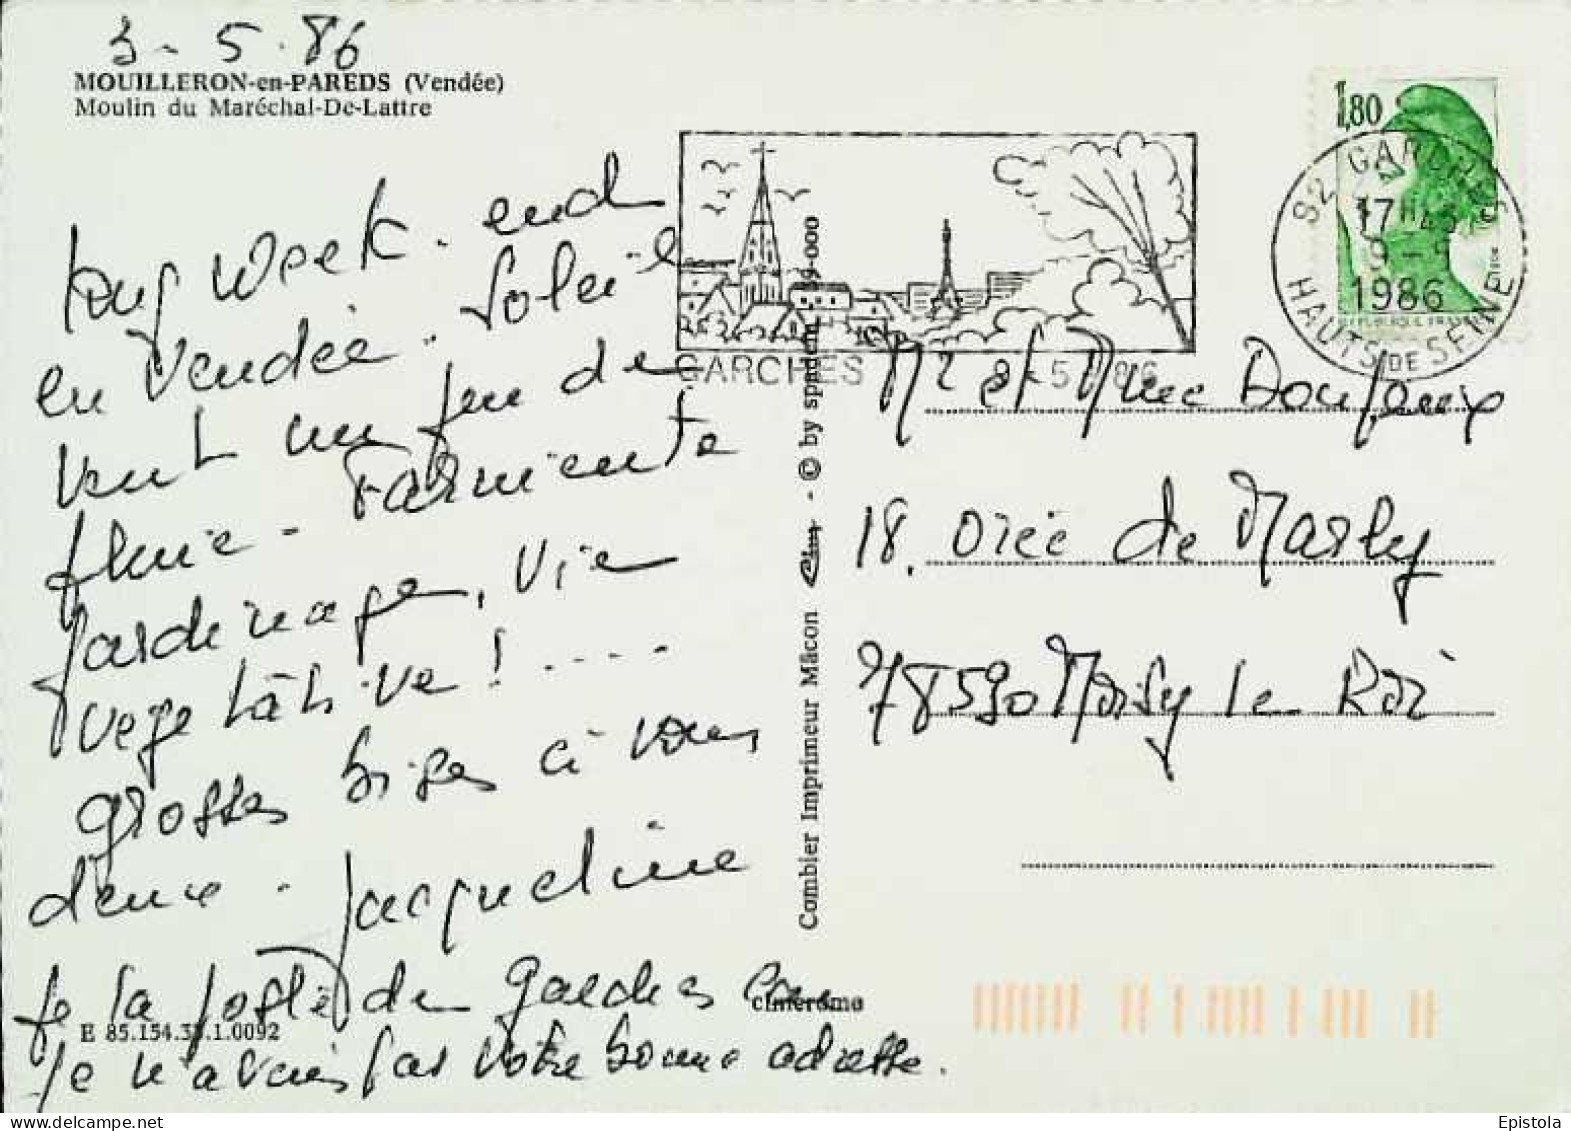 3 - 5 - 86
MOUILLERON-en-PAREDS (Vendée)
Moulin du Maréchal-De-Lattre
long week-end
en Vendée. Soleil
vent un peu de
pluie - Farniente
jardinage, vie
vegetâtive ! ....
grosses bises à vous
deux - Jacqueline
je la poste de Garches car
je n'avais pas votre bonne adresse.
E 85.154.33.1.0092
cimcrome
Combier Imprimeur Mâcon - © by spadem 39-000
GARCHES 9 - 5 1986
1,80
92 GARCHES
17H45
9 - 5
1986
HAUTS DE SEINE
Mr et Mme
18, Orée de Marly
78590 Noisy le Roi
Epistola